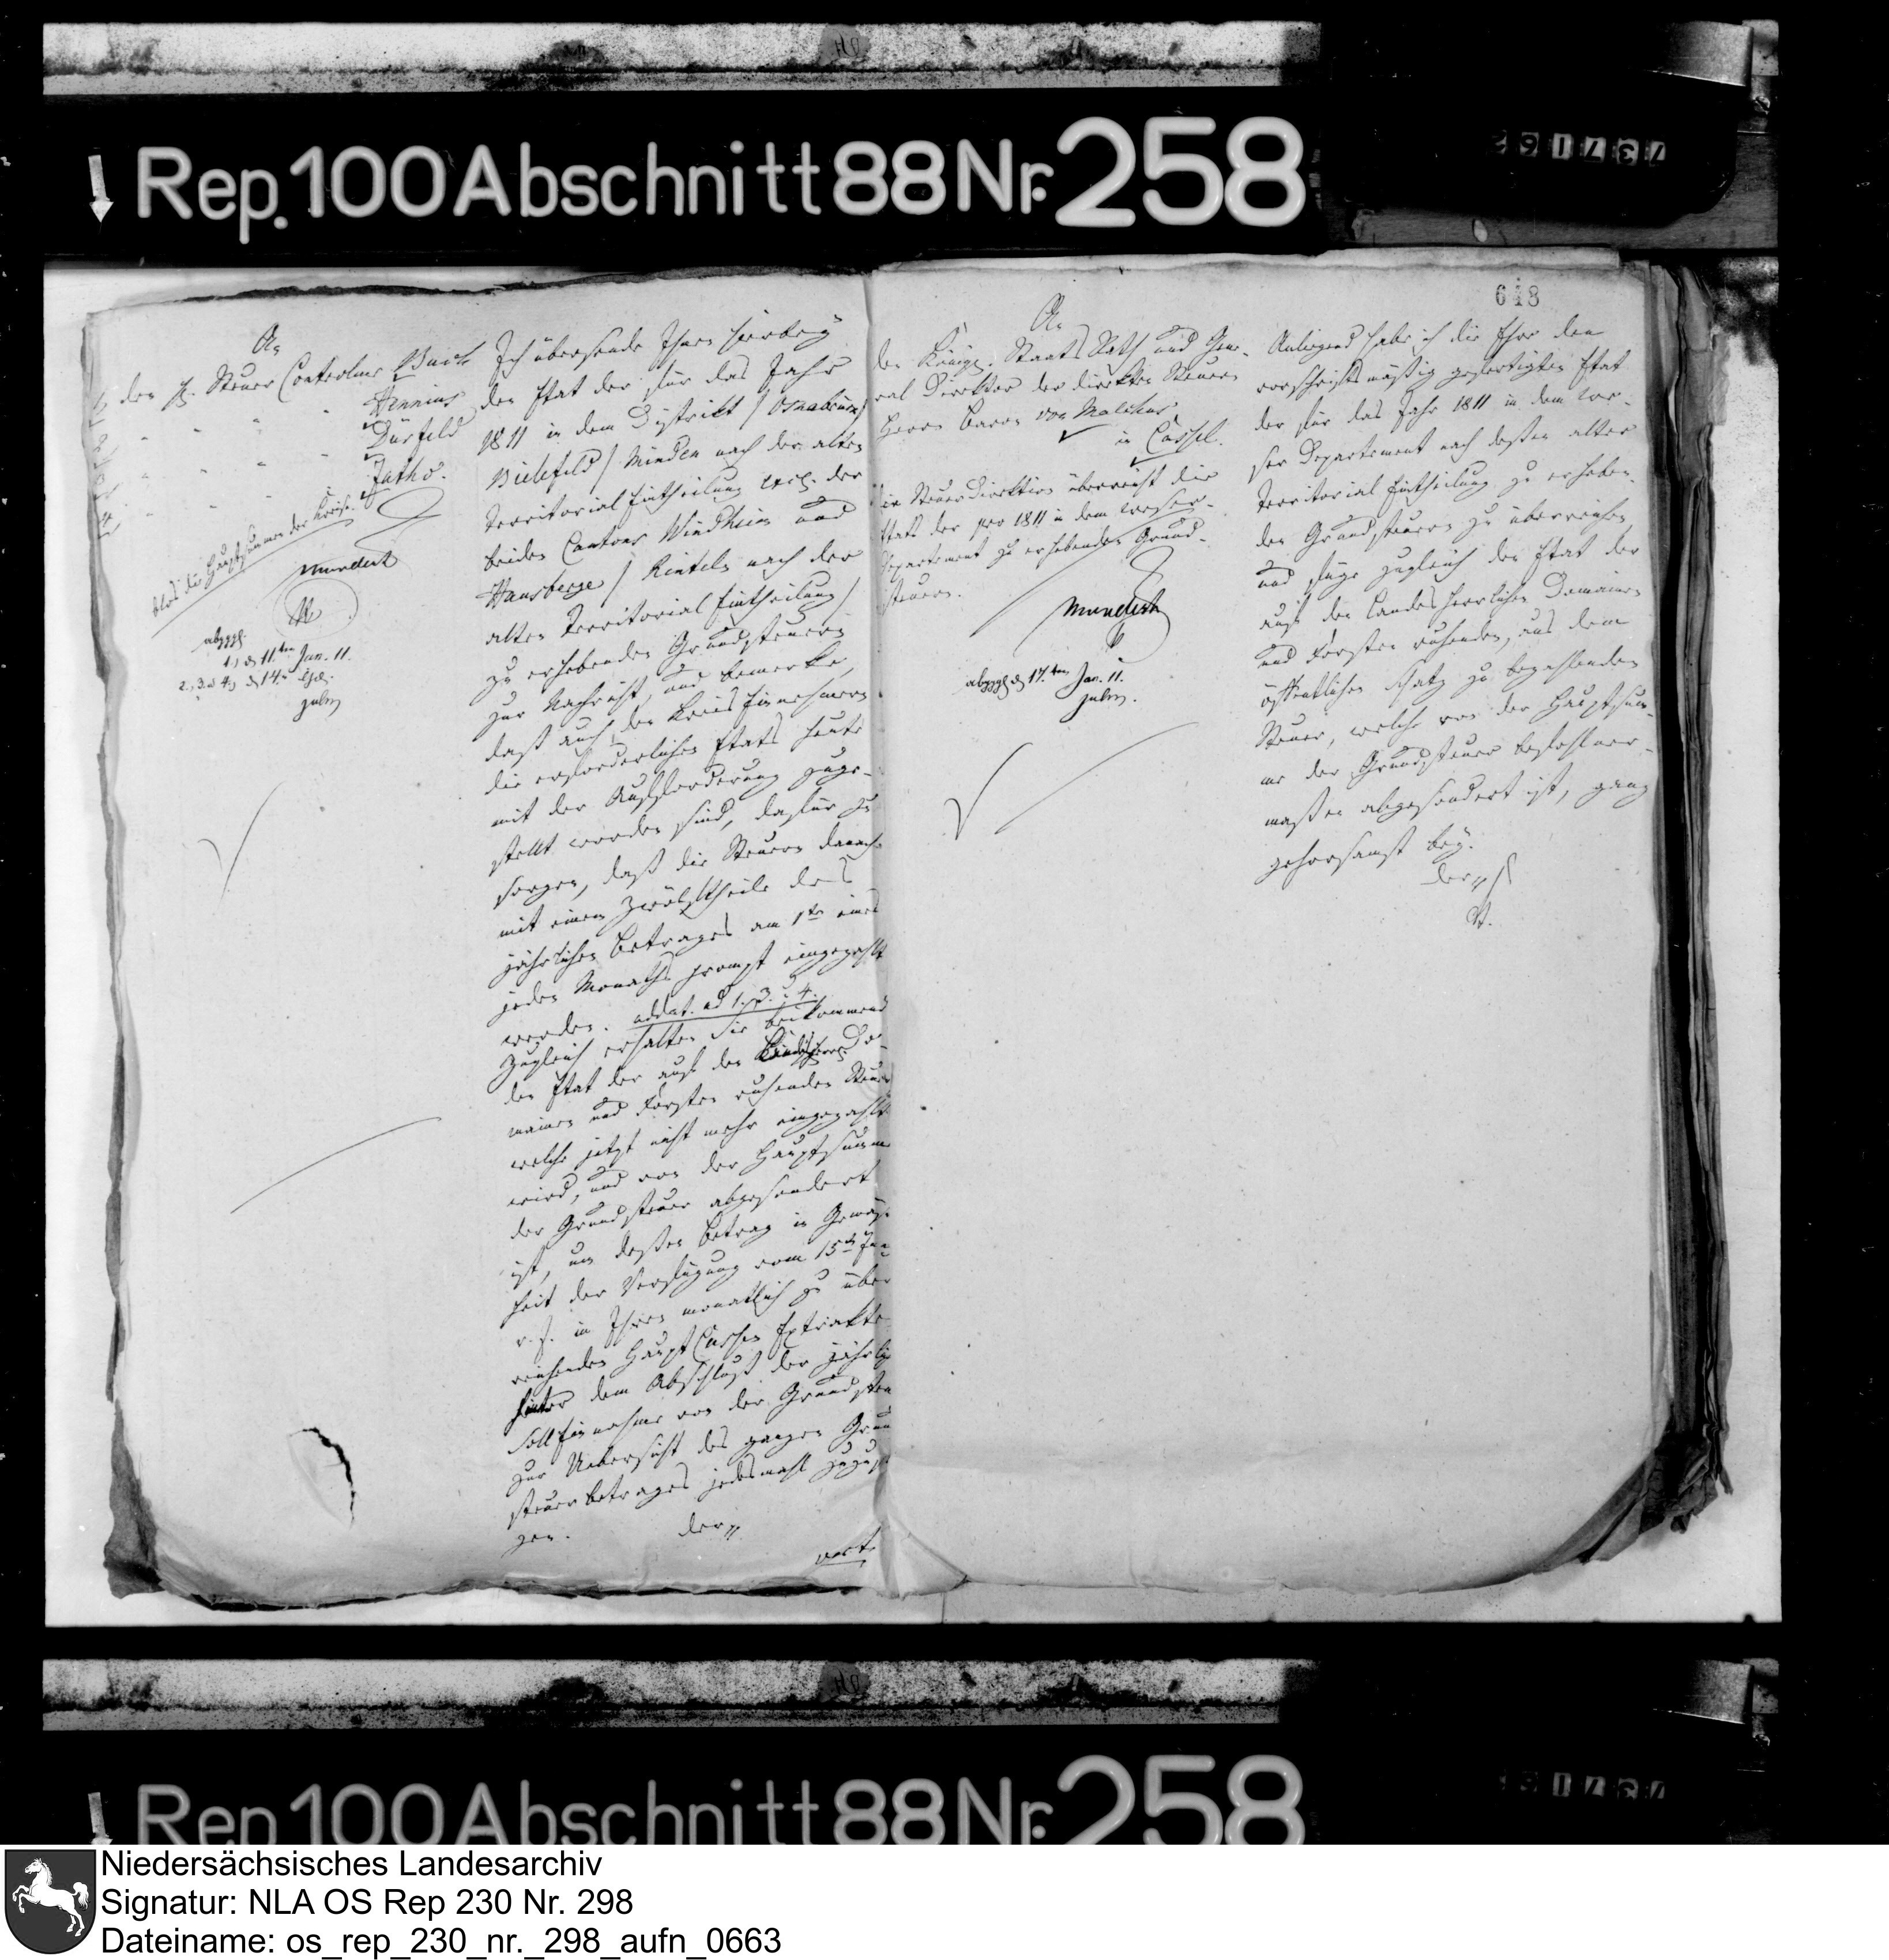 Rep. 100 Abschnitt 88 Nr. 258
737162
An
den H. Steuer Controleur Buch
Hennius
Dürfeld
Jatho.
blos die Hauptsummen der Kreise.
mundirt
abggl.
1.) d 11ten Jan. 11.
2., 3. u 4.) d 14.
Ich übersende Ihnen hierbey
den Etat der für das Jahr
1811 in dem Distrikt / Osnabrück /
Bielefeld / Minden nach der alten
Territorial Eintheilung excl. der
beiden Cantons Windheim und
Hausberge / Rinteln nach der
alten Territorial Eintheilung /
zu erhebenden Grundsteuern
zur Nachricht, und bemerke,
daß auch den Kreis Einnehmern
die erforderlichen Etats heute
mit der Aufforderung zuge-
stellt worden sind, dafür zu
sorgen, daß die Steuern danach
mit einem Zwölftheile des
jährlichen Betrages am 1ten eines
jeden Monaths prompt eingezahlt
werden. addat. ad 1. 3. u 4.
Zugleich erhalten Sie beikommend
den Etat der auf den Landesherrl. Do-
mainen und Forsten ruhenden Steuer
welche jetzt nicht mehr eingezahlt
wird, und von der Hauptsumme
der Grundsteuer abgesondert
ist, um deßen Betrag in Gemäs-
heit der Verfügung vom 15ten Jun
v. J. in Ihren monatlich zu über
reichenden Haupt Cassen Extrakte
hinter dem Abschluß der jährlich
Soll Einnahme von der Grundsteu
zur Uebersicht des ganzen Grun
steuerbetrages jedesmahl zuzufü
gen.
Der
vert.
648
An
den Königl. Staats Rath und Gene-
ral Direktor der direkten Steuern
Herrn Baron von Malchus
in Cassel.
die Steuerdirektion überreicht die
Etats der pro 1811 in dem Weser-
Departement zu erhebenden Grund-
steuern.
mundirt
abggl d 17.ten Jan. 11.
Anliegend habe ich die Ehre den
vorschriftsmäßig gefertigten Etat
der für das Jahr 1811 in dem We-
ser Departement nach deßen alter
Territorial Eintheilung zu erheben-
den Grundsteuern zu überreichen,
und füge zugleich den Etat der
auf den Landesherrlichen Domainen
und Forsten ruhenden, aus dem
öffentlichen Schatz zu bezahlenden
Steuer, welche von der Hauptsum-
me der Grundsteuer befohlner-
maßen abgesondert ist, ganz
gehorsamst bey.
Der
Rep. 100 Abschnitt 88 Nr. 258
Niedersächsisches Landesarchiv
Signatur: NLA OS Rep 230 Nr. 298
Dateiname: os_rep_230_nr._298_aufn_0663